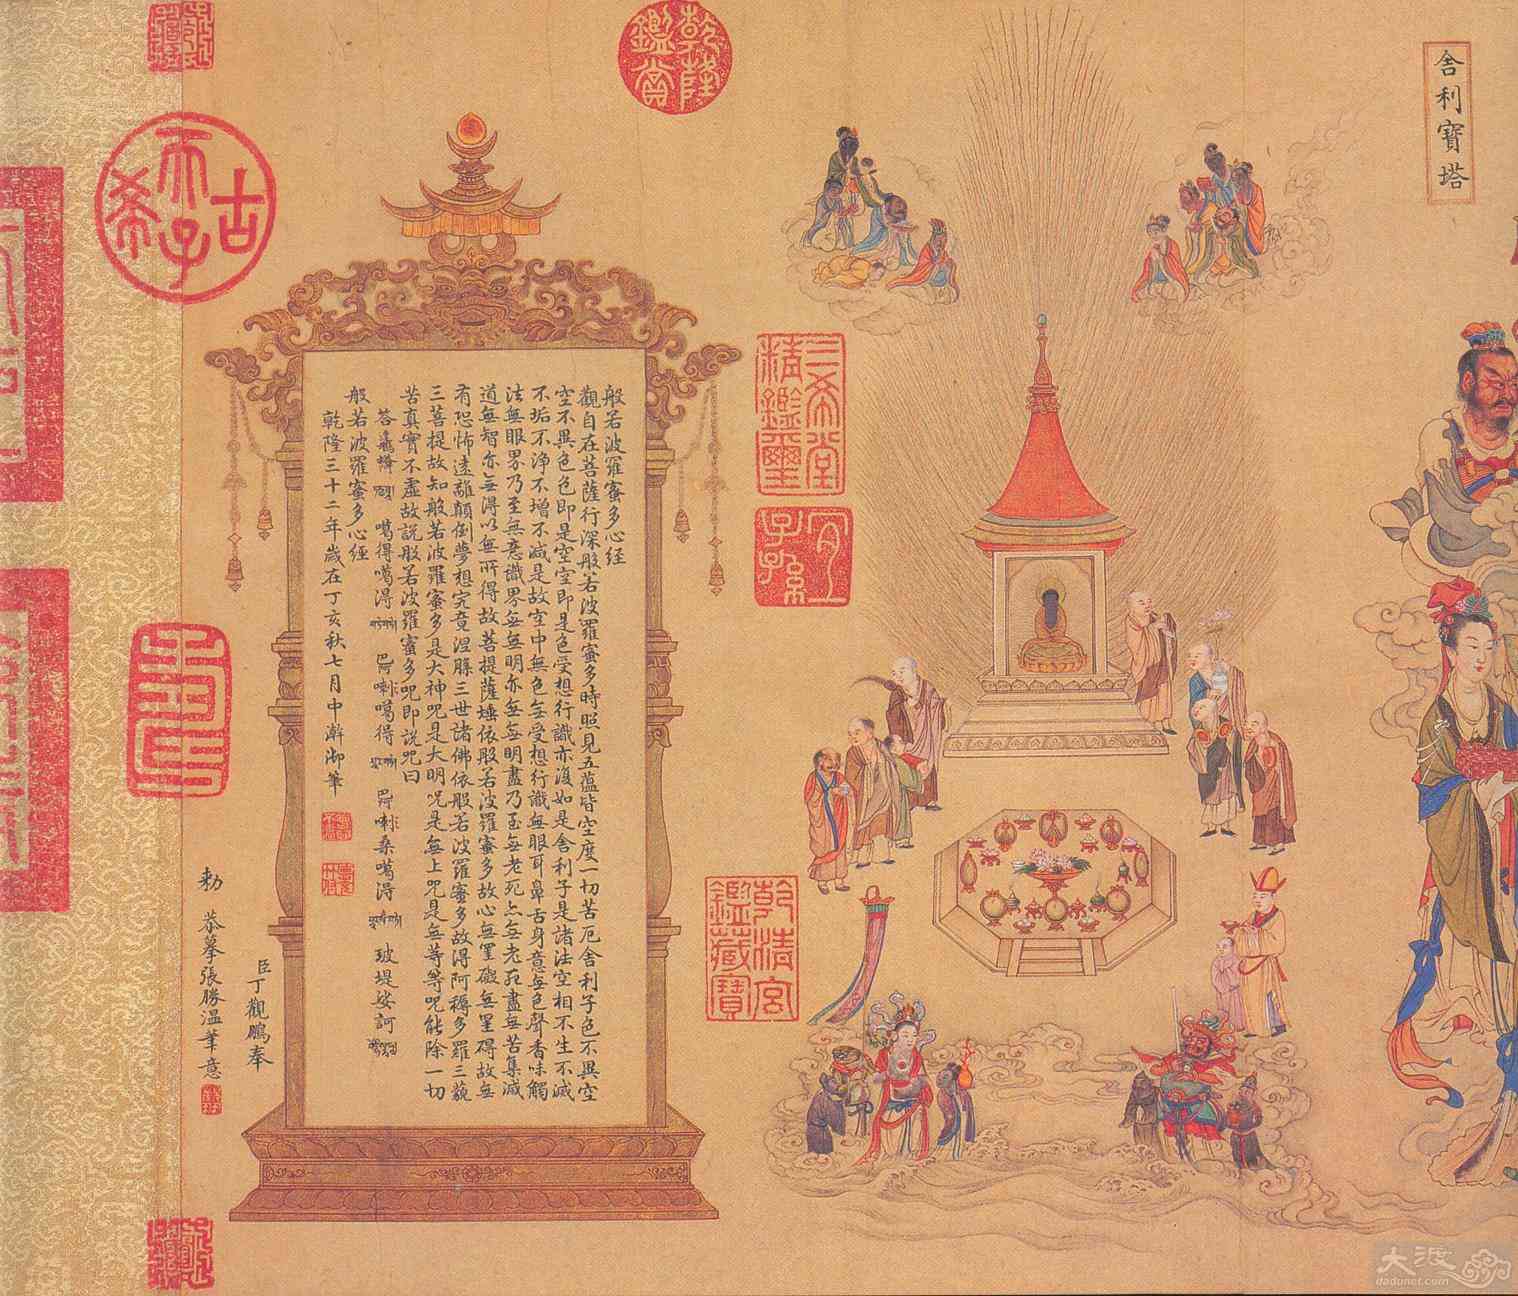 舍利寶塔
乾隆鑑賞
三希堂精鑑璽
宜子孫
乾清宮鑑藏寶
般若波羅蜜多心経
觀自在菩薩行深般若波羅蜜多時照見五蘊皆空度一切苦厄舍利子色不異空
空不異色色即是空空即是色受想行識亦復如是舍利子是諸法空相不生不滅
不垢不淨不增不減是故空中無色無受想行識無眼耳鼻舌身意無色聲香味觸
法無眼界乃至無意識界無無明亦無無明盡乃至無老死亦無老死盡無苦集滅
道無智亦無得以無所得故菩提薩埵依般若波羅蜜多故心無罣礙無罣礙故無
有恐怖遠離顛倒夢想究竟涅槃三世諸佛依般若波羅蜜多故得阿耨多羅三藐
三菩提故知般若波羅蜜多是大神咒是大明咒是無上咒是無等等咒能除一切
苦真實不虛故說般若波羅蜜多咒即說咒曰
噶得噶得 巴阿喇噶得 巴阿喇桑噶得 玻堤娑訶
般若波羅蜜多心經
乾隆三十二年歲在丁亥秋七月中澣御筆
臣丁觀鵬奉
勅恭摹張勝溫筆意
古希天子
壽
大渡
dadunet.com